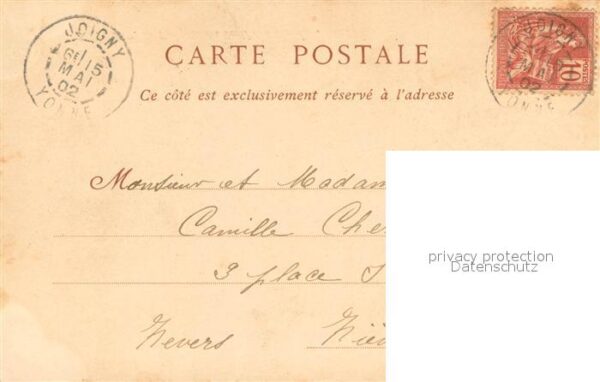 JOIGNY
6E 15
MAI
02
YONNE
CARTE POSTALE
Ce côté est exclusivement réservé à l'adresse
10
JOIGNY
MAI
02
YONNE
Monsieur et Madam
Camille Che
3 place S
Nevers Niè
privacy protection
Datenschutz